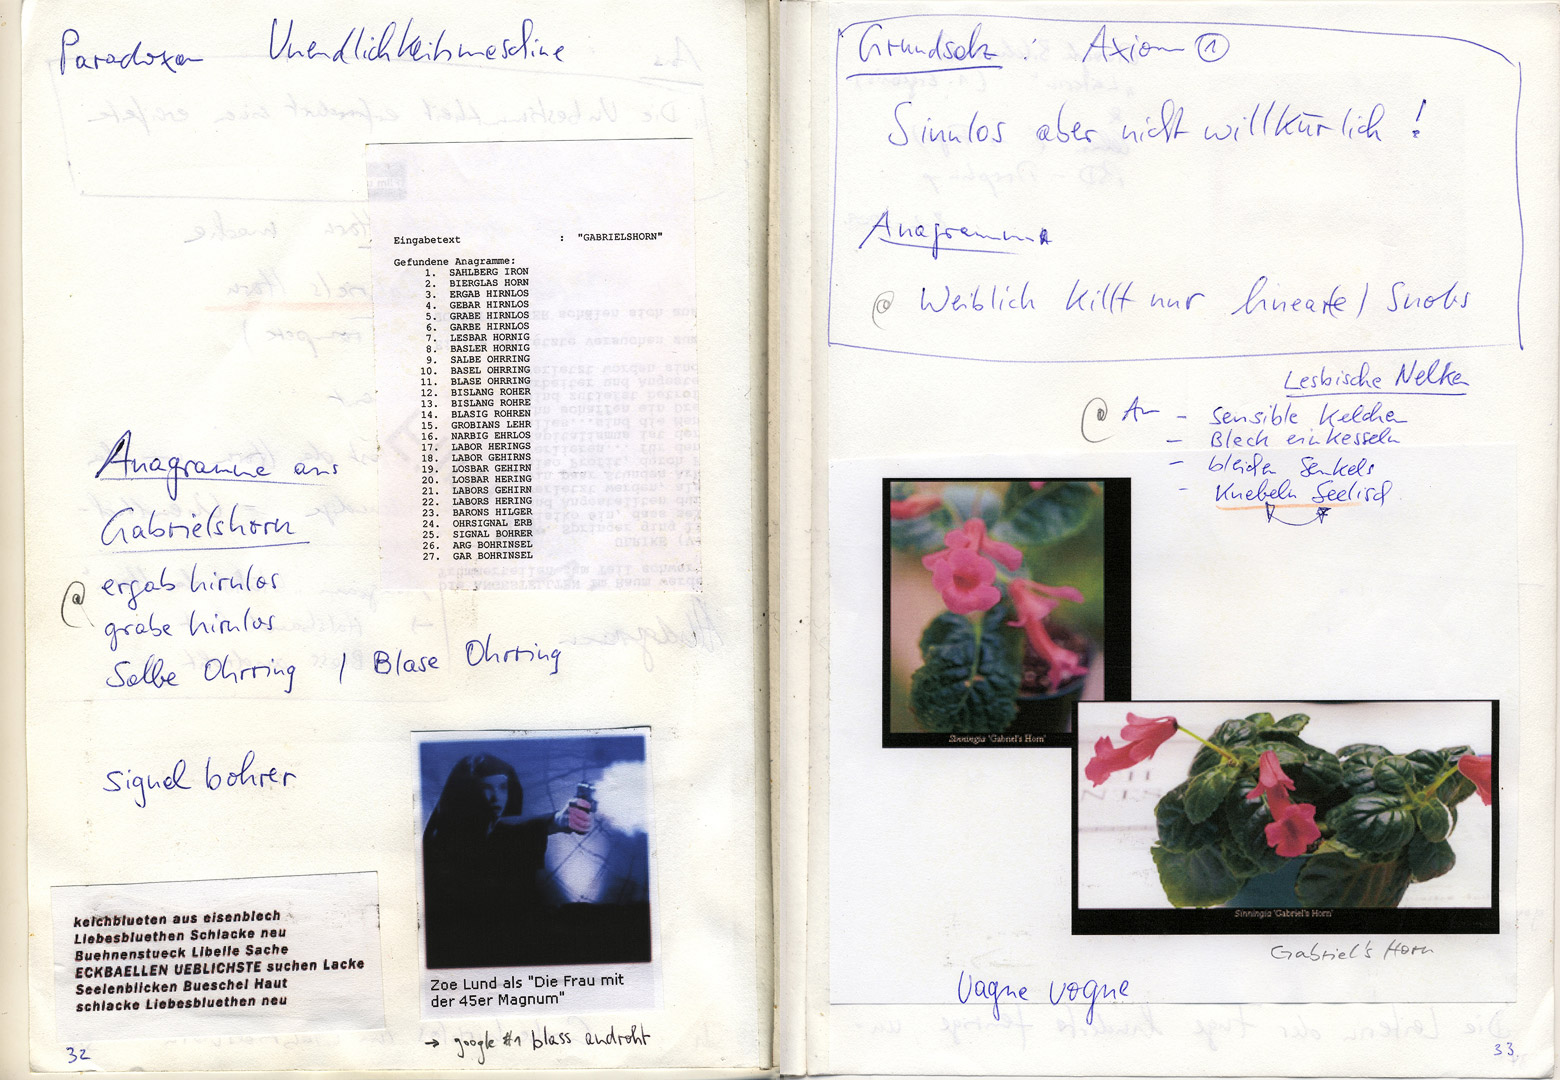 Paradoxon Unendlichkeitsmaschine
Eingabetext : "GABRIELSHORN"
Gefundene Anagramme:
1. SAHLBERG IRON
2. BIERGLAS HORN
3. ERGAB HIRNLOS
4. GEBAR HIRNLOS
5. GRABE HIRNLOS
6. GARBE HIRNLOS
7. LESBAR HORNIG
8. BASLER HORNIG
9. SALBE OHRRING
10. BASEL OHRRING
11. BLASE OHRRING
12. BISLANG ROHER
13. BISLANG ROHRE
14. BLASIG ROHREN
15. GROBIANS LEHR
16. NARBIG EHRLOS
17. LABOR HERINGS
18. LABOR GEHIRNS
19. LOSBAR GEHIRN
20. LOSBAR HERING
21. LABORS GEHIRN
22. LABORS HERING
23. BARONS HILGER
24. OHRSIGNAL ERB
25. SIGNAL BOHRER
26. ARG BOHRINSEL
27. GAR BOHRINSEL
Anagramme aus
Gabrielshorn
@ ergab hirnlos
grabe hirnlos
Salbe Ohrring / Blase Ohrring
signal bohrer
kelchblueten aus eisenblech
Liebesbluethen Schlacke neu
Buehnenstueck Libelle Sache
ECKBAELLEN UEBLICHSTE suchen Lacke
Seelenblicken Bueschel Haut
schlacke Liebesbluethen neu
Zoe Lund als "Die Frau mit
der 45er Magnum"
→ google #1 blass androht
32
Grundsatz : Axiom ①
Sinnlos aber nicht willkürlich !
Anagramm
@ Weiblich killt nur lineare / Snobs
Lesbische Nelken
@ An - sensible Kelchen
- Blech einkesseln
- bleichen Senkels
- Knebeln Seelisch
Sinningia 'Gabriel's Horn'
Sinningia 'Gabriel's Horn'
Gabriel's Horn
Vagne vogne
33